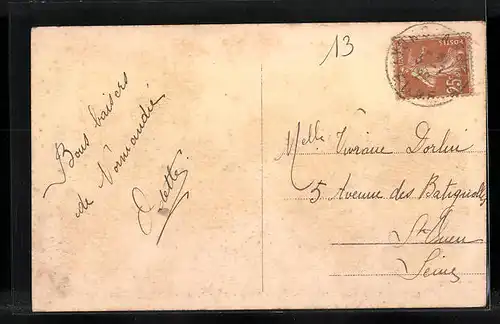 13
Bons baisers
de Normandie
Odette
Melle Viviane Dorlin
5 Avenue des Batignolles
St Ouen
Seine
25